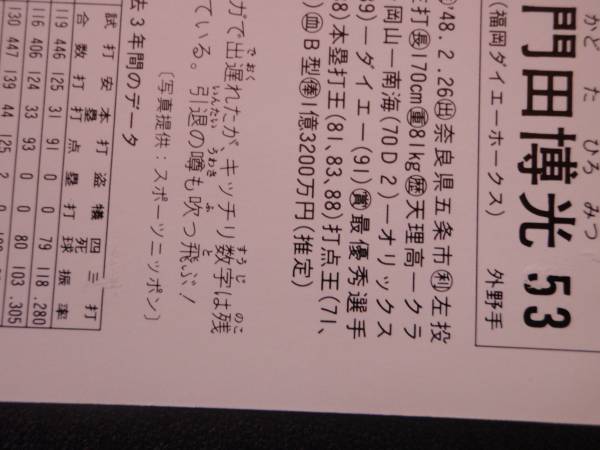 かど た ひろ みつ
門田博光 53
(福岡ダイエーホークス) 外野手
'48.2.26㊋奈良県五条市㊒左投
打㊐170cm㊑81kg㊭天理高―クラ
岡山―南海(70D2)―オリックス
89)―ダイエー(91)㊝最優秀選手
88)本塁打王(81、83、88)打点王(71、
)㊌B型㊍1億3200万円(推定)
でおく すうじ のこ
ガで出遅れたが、キッチリ数字は残
いんたい うわさ ふ と
ている。引退の噂も吹っ飛ぶ!
〔写真提供:スポーツニッポン〕
去3年間のデータ
試合 打数 安打 本塁打 打点 盗塁 犠打 四死球 三振 打率
119 446 125 31 91 0 0 79 118 .280
116 406 124 33 93 0 0 80 103 .305
130 447 139 44 125 2 0